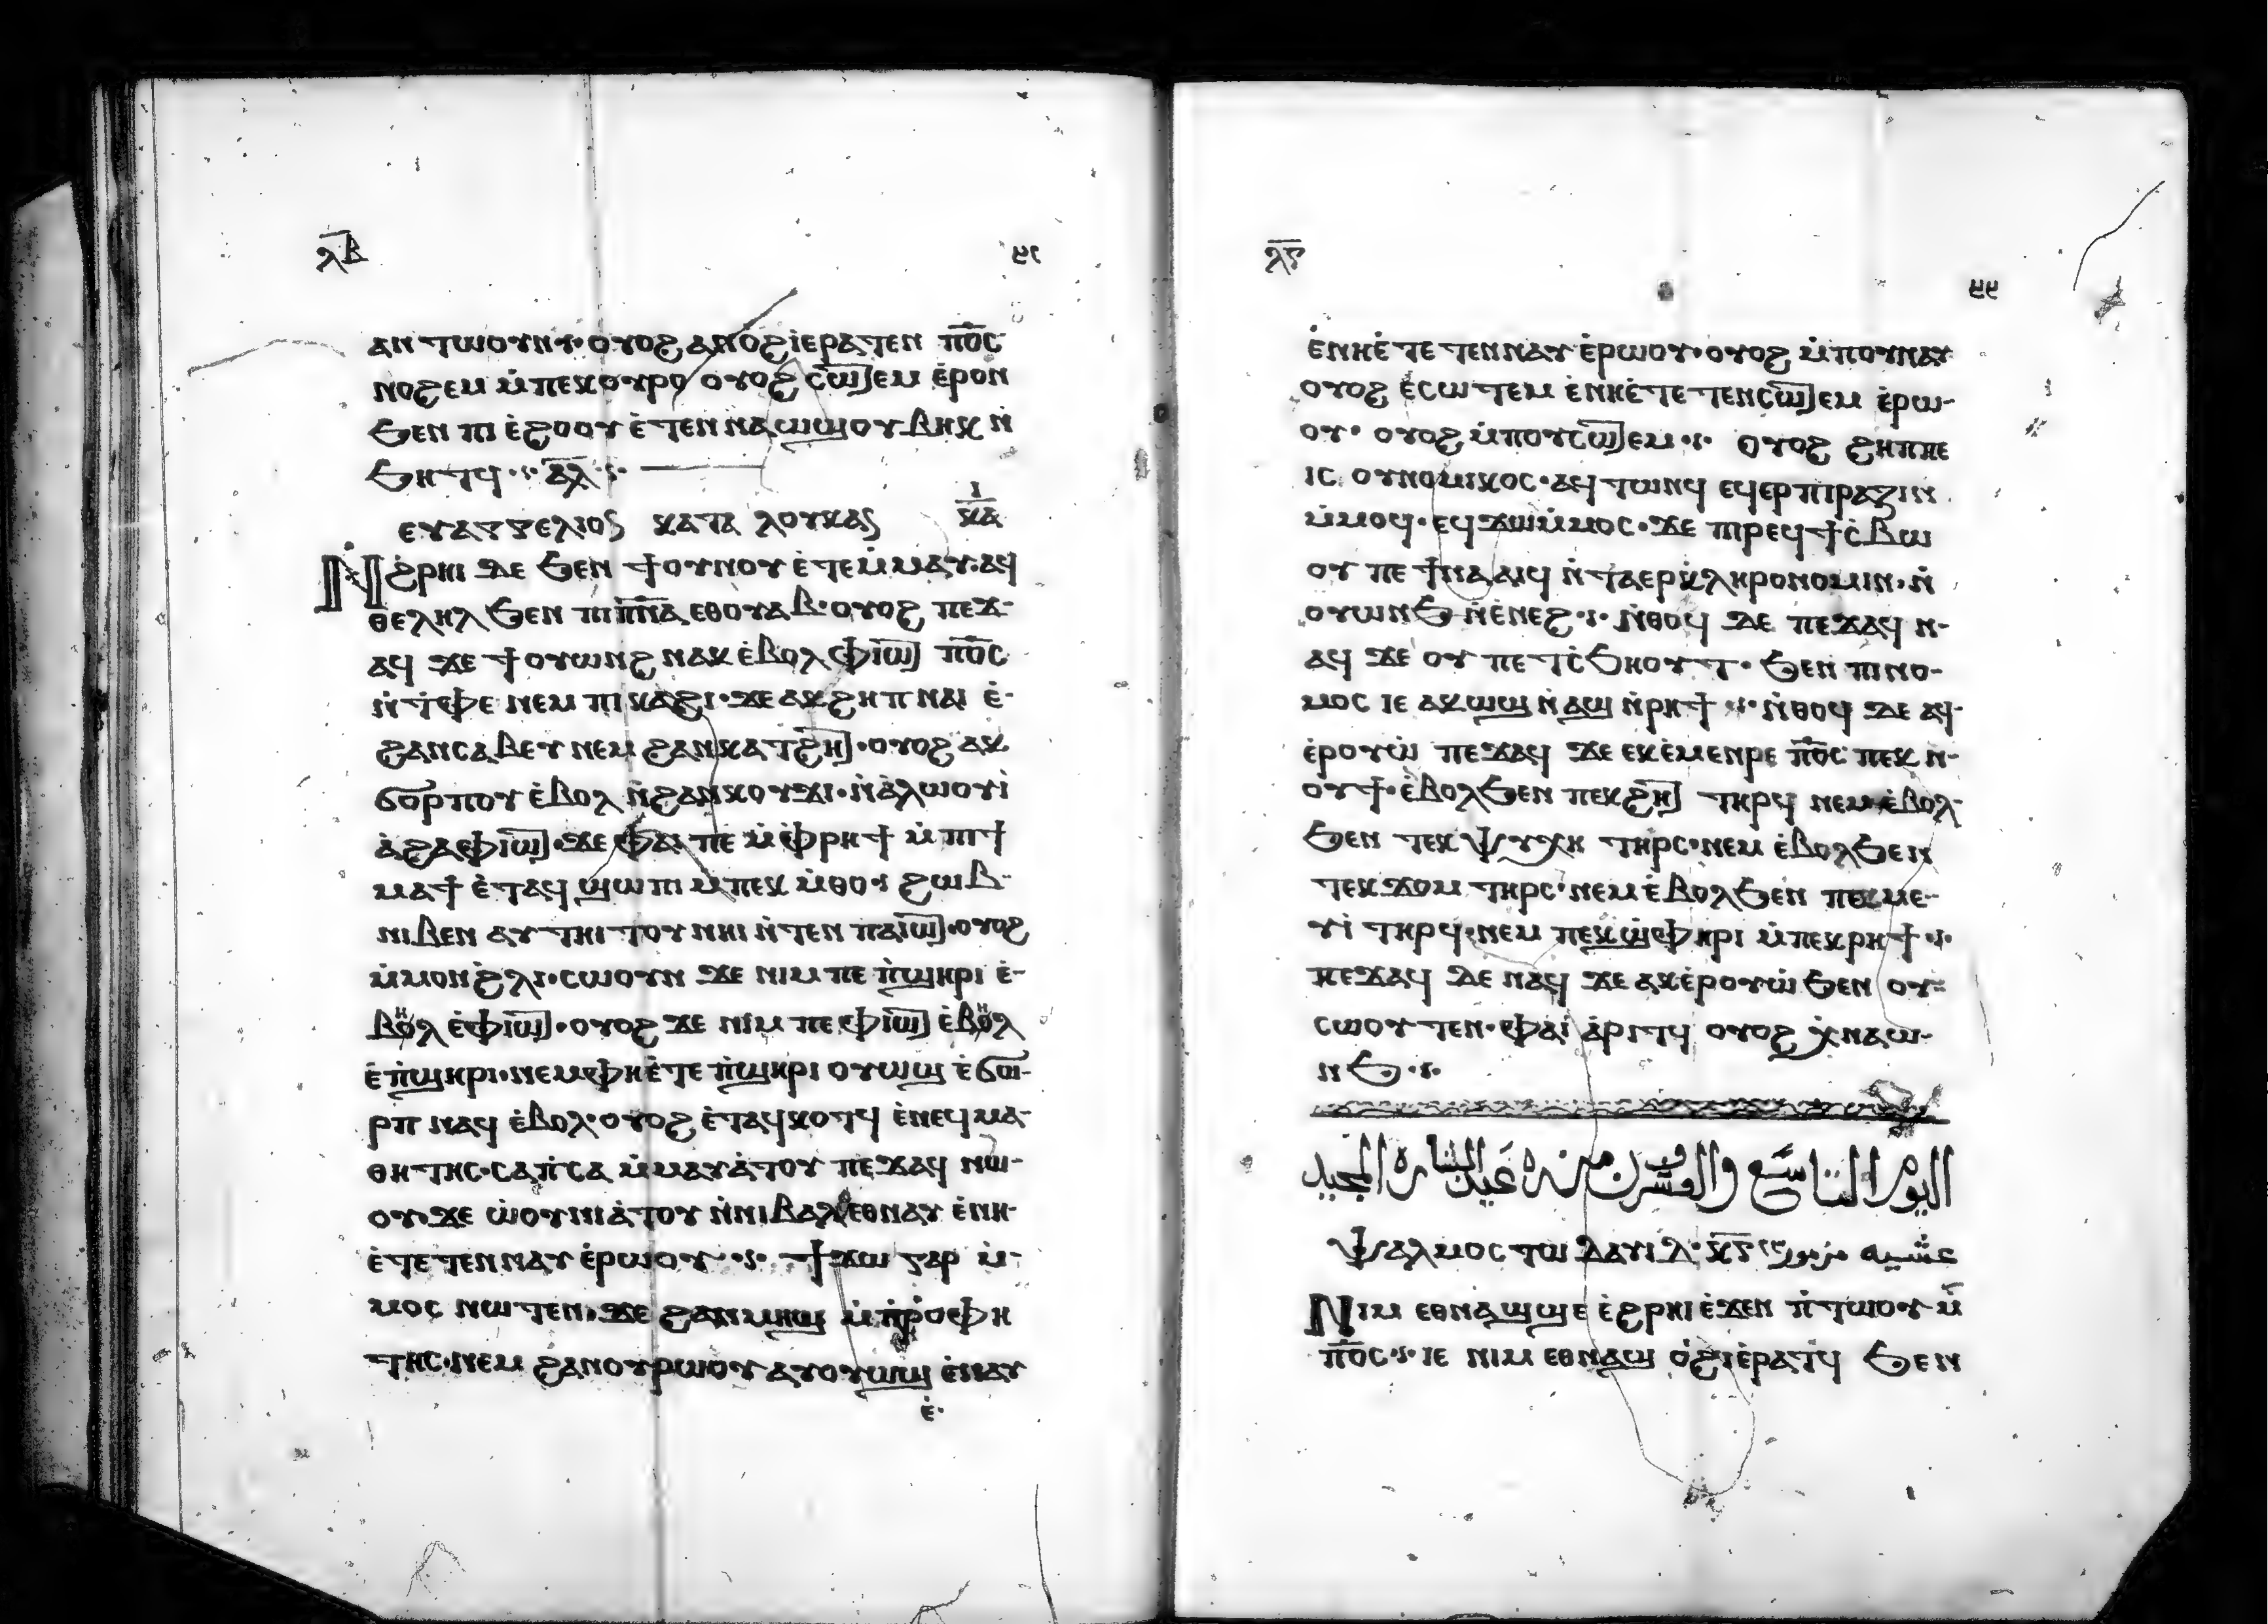 ⲗⲃ
ⲁⲛⲧⲱⲟⲩⲛ ⲟⲩⲟϩ ⲁⲛⲟϩⲓⲉⲣⲁⲧⲉⲛ ⲡ̅ⲟ̅ⲥ̅
ⲛⲟϩⲉⲙ ⲙ̇ⲡⲉⲕⲟⲩⲣⲟ ⲟⲩⲟϩ ⲥⲱⲧⲉⲙ ⲉ̇ⲣⲟⲛ
ϧⲉⲛ ⲡⲓ ⲉ̇ϩⲟⲟⲩ ⲉ̇ⲧⲉⲛⲛⲁⲱϣ ⲟⲩⲃⲏⲕ ⲛ̇
ϧⲏⲧϥ ⲁ̅ⲗ̅
ⲉⲩⲁⲅⲅⲉⲗⲓⲟⲥ ⲕⲁⲧⲁ ⲗⲟⲩⲕⲁⲥ ⲓ̅ ⲕⲁ
ⲛ̇ϩⲣⲏⲓ ⲇⲉ ϧⲉⲛ ϯⲟⲩⲛⲟⲩ ⲉ̇ⲧⲉⲙ̇ⲙⲁⲩ·ⲁϥ
ⲑⲉⲗⲏⲗ ϧⲉⲛ ⲡⲓⲡ̅ⲛ̅ⲁ̅ ⲉⲑⲟⲩⲁⲃ·ⲟⲩⲟϩ ⲡⲉϫ-
ⲁϥ ϫⲉ ϯⲟⲩⲱⲛϩ ⲛⲁⲕ ⲉ̇ⲃⲟⲗ ⲫⲓⲱⲧ ⲡ̅ⲟ̅ⲥ̅
ⲛ̇ⲧ̇ⲫⲉ ⲛⲉⲙ ⲡⲓⲕⲁϩⲓ·ϫⲉ ⲁⲕϩⲏⲡ ⲛⲁⲓ ⲉ̇-
ϩⲁⲛⲥⲁⲃⲉⲩ ⲛⲉⲙ ϩⲁⲛⲕⲁⲧϩⲏⲧ·ⲟⲩⲟϩ ⲁⲕ
ϭⲟⲣⲡⲟⲩ ⲉ̇ⲃⲟⲗ ⲛ̇ϩⲁⲛⲕⲟⲩϫⲓ·ⲛ̇ⲁ̇ⲗⲱⲟⲩⲓ̇
ⲁ̇ϩⲁ ⲫⲓⲱⲧ·ϫⲉ ⲫⲁⲓ ⲡⲉ ⲙ̇ⲫⲣⲏϯ ⲙ̇ⲡⲓϯ
ⲙⲁϯ ⲉ̇ⲧⲁϥϣⲱⲡⲓ ⲙ̇ⲡⲉⲕ ⲙ̇ⲑⲟ ϩⲱⲃ
ⲛⲓⲃⲉⲛ ⲁⲩⲧⲏⲓⲧⲟⲩ ⲛⲏⲓ ⲛ̇ⲧⲉⲛ ⲡⲁⲓⲱⲧ·ⲟⲩⲟϩ
ⲙ̇ⲙⲟⲛ ϩ̇ⲗⲓ·ⲥⲱⲟⲩⲛ ϫⲉ ⲛⲓⲙ ⲡⲉ ⲡ̇ϣⲏⲣⲓ ⲉ̇-
ⲃⲏⲗ ⲉ̇ⲫⲓⲱⲧ·ⲟⲩⲟϩ ϫⲉ ⲛⲓⲙ ⲡⲉ ⲫⲓⲱⲧ ⲉ̇ⲃⲏⲗ
ⲉ̇ⲡ̇ϣⲏⲣⲓ·ⲛⲉⲙ ⲫⲏⲉ̇ⲧⲉ ⲡ̇ϣⲏⲣⲓ ⲟⲩⲱϣ ⲉ̇ϭⲱ-
ⲣⲡ ⲛⲁϥ ⲉ̇ⲃⲟⲗ·ⲟⲩⲟϩ ⲉ̇ⲧⲁϥⲕⲟⲧϥ ⲉ̇ⲛⲉϥⲙⲁ-
ⲑⲏⲧⲏⲥ·ⲥⲁⲡ̇ⲥⲁ ⲙ̇ⲙⲁⲩⲁ̇ⲧⲟⲩ ⲡⲉϫⲁϥ ⲛⲱ-
ⲟⲩ·ϫⲉ ⲱ̇ⲟⲩⲛⲓⲁ̇ⲧⲟⲩ ⲛ̇ⲛⲓⲃⲁⲗ ⲉⲑⲛⲁⲩ ⲉ̇ⲛⲏ-
ⲉ̇ⲧⲉⲧⲉⲛⲛⲁⲩ ⲉ̇ⲣⲱⲟⲩ ϯϫⲱ ⲅⲁⲣ ⲙ̇-
ⲙⲟⲥ ⲛⲱⲧⲉⲛ·ϫⲉ ϩⲁⲛⲙⲏϣ ⲙ̇ⲡⲣⲟⲫⲏ
ⲧⲏⲥ·ⲛⲉⲙ ϩⲁⲛⲟⲩⲣⲱⲟⲩ ⲁⲩⲟⲩⲱϣ ⲉ̇ⲛⲁⲩ
ⲉ̇·
ⲉ̇ⲛⲏⲉ̇ⲧⲉⲧⲉⲛⲛⲁⲩ ⲉ̇ⲣⲱⲟⲩ·ⲟⲩⲟϩ ⲙ̇ⲡⲟⲩⲛⲁⲩ
ⲟⲩⲟϩ ⲉ̇ⲥⲱⲧⲉⲙ ⲉ̇ⲛⲏⲉ̇ⲧⲉⲧⲉⲛⲥⲱⲧⲉⲙ ⲉ̇ⲣⲱ-
ⲟⲩ· ⲟⲩⲟϩ ⲙ̇ⲡⲟⲩⲥⲱⲧⲉⲙ ⲟⲩⲟϩ ϩⲏⲡⲡⲉ
ⲓⲥ ⲟⲩⲛⲟⲙⲓⲕⲟⲥ·ⲁϥⲧⲱⲛϥ ⲉϥⲉⲣⲡⲓⲣⲁⲍⲓⲛ
ⲙ̇ⲙⲟϥ·ⲉϥϫⲱⲙ̇ⲙⲟⲥ·ϫⲉ ⲡⲓⲣⲉϥϯⲥ̇ⲃⲱ
ⲟⲩ ⲡⲉ ϯⲛⲁⲁⲓϥ ⲛ̇ⲧⲁⲉⲣⲕ̇ⲗⲏⲣⲟⲛⲟⲙⲓⲛ·ⲛ̇
ⲟⲩⲱⲛϧ ⲛ̇ⲉ̇ⲛⲉϩ ⲛ̇ⲑⲟϥ ⲇⲉ ⲡⲉϫⲁϥ ⲛ-
ⲁϥ ϫⲉ ⲟⲩ ⲡⲉⲧⲥ̇ϧⲏⲟⲩⲧ· ϧⲉⲛ ⲡⲓⲛⲟ-
ⲙⲟⲥ ⲓⲉ ⲁⲕⲱϣ ⲛ̇ⲁϣ ⲛ̇ⲣⲏϯ ⲛ̇ⲑⲟϥ ⲇⲉ ⲁϥ-
ⲉ̇ⲣⲟⲩⲱ̇ ⲡⲉϫⲁϥ ϫⲉ ⲉⲕⲉ̇ⲙⲉⲛⲣⲉ ⲡ̅ⲟ̅ⲥ̅ ⲡⲉⲕ ⲛ-
ⲟⲩϯ·ⲉ̇ⲃⲟⲗϧⲉⲛ ⲡⲉⲕϩⲏⲧ ⲧⲏⲣϥ ⲛⲉⲙ ⲉ̇ⲃⲟⲗ
ϧⲉⲛ ⲧⲉⲕ ⲯⲩⲭⲏ ⲧⲏⲣⲥ·ⲛⲉⲙ ⲉ̇ⲃⲟⲗϧⲉⲛ
ⲧⲉⲕ ϫⲟⲙ ⲧⲏⲣⲥ·ⲛⲉⲙ ⲉ̇ⲃⲟⲗϧⲉⲛ ⲡⲉⲕⲙⲉ-
ⲩⲓ̇ ⲧⲏⲣϥ·ⲛⲉⲙ ⲡⲉⲕϣ̇ⲫⲏⲣⲓ ⲙ̇ⲡⲉⲕⲣⲏϯ
ⲡⲉϫⲁϥ ⲇⲉ ⲛⲁϥ ϫⲉ ⲁⲕⲉ̇ⲣⲟⲩⲱ̇ ϧⲉⲛ ⲟⲩ-
ⲥⲱⲟⲩⲧⲉⲛ·ⲫⲁⲓ ⲁ̇ⲣⲓⲧϥ ⲟⲩⲟϩ ⲭ̇ⲛⲁⲱ-
ⲛϧ
اليوم التاسع والعشرين من عيد البشارة المجيد
ⲯⲁⲗⲙⲟⲥ ⲧⲱ ⲇⲁⲩⲓⲇ·ⲕ̅ⲅ̅ مزمور عشية
ⲛⲓⲙ ⲉⲑⲛⲁϣϣⲉ ⲉ̇ϩⲣⲏⲓ ⲉ̇ϫⲉⲛ ⲡ̇ⲧⲱⲟⲩ ⲙ̇
ⲡ̅ⲟ̅ⲥ̅ ⲓⲉ ⲛⲓⲙ ⲉⲑⲛⲁϣ ⲟ̇ϩⲓⲉ̇ⲣⲁⲧϥ ϧⲉⲛ